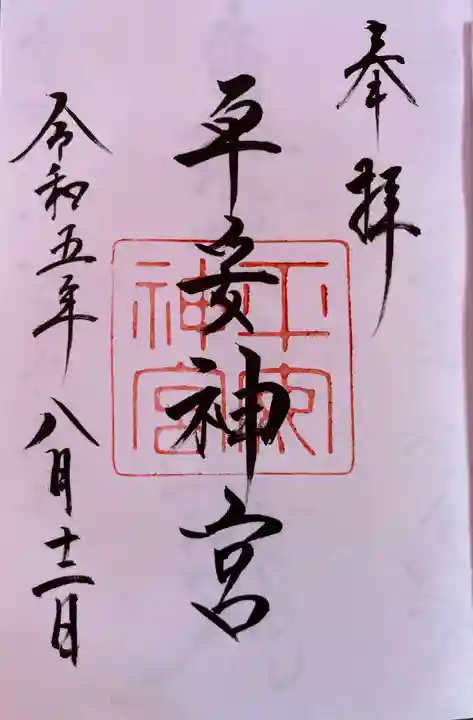 奉拝
平安神宮
令和五年八月十二日
神宮